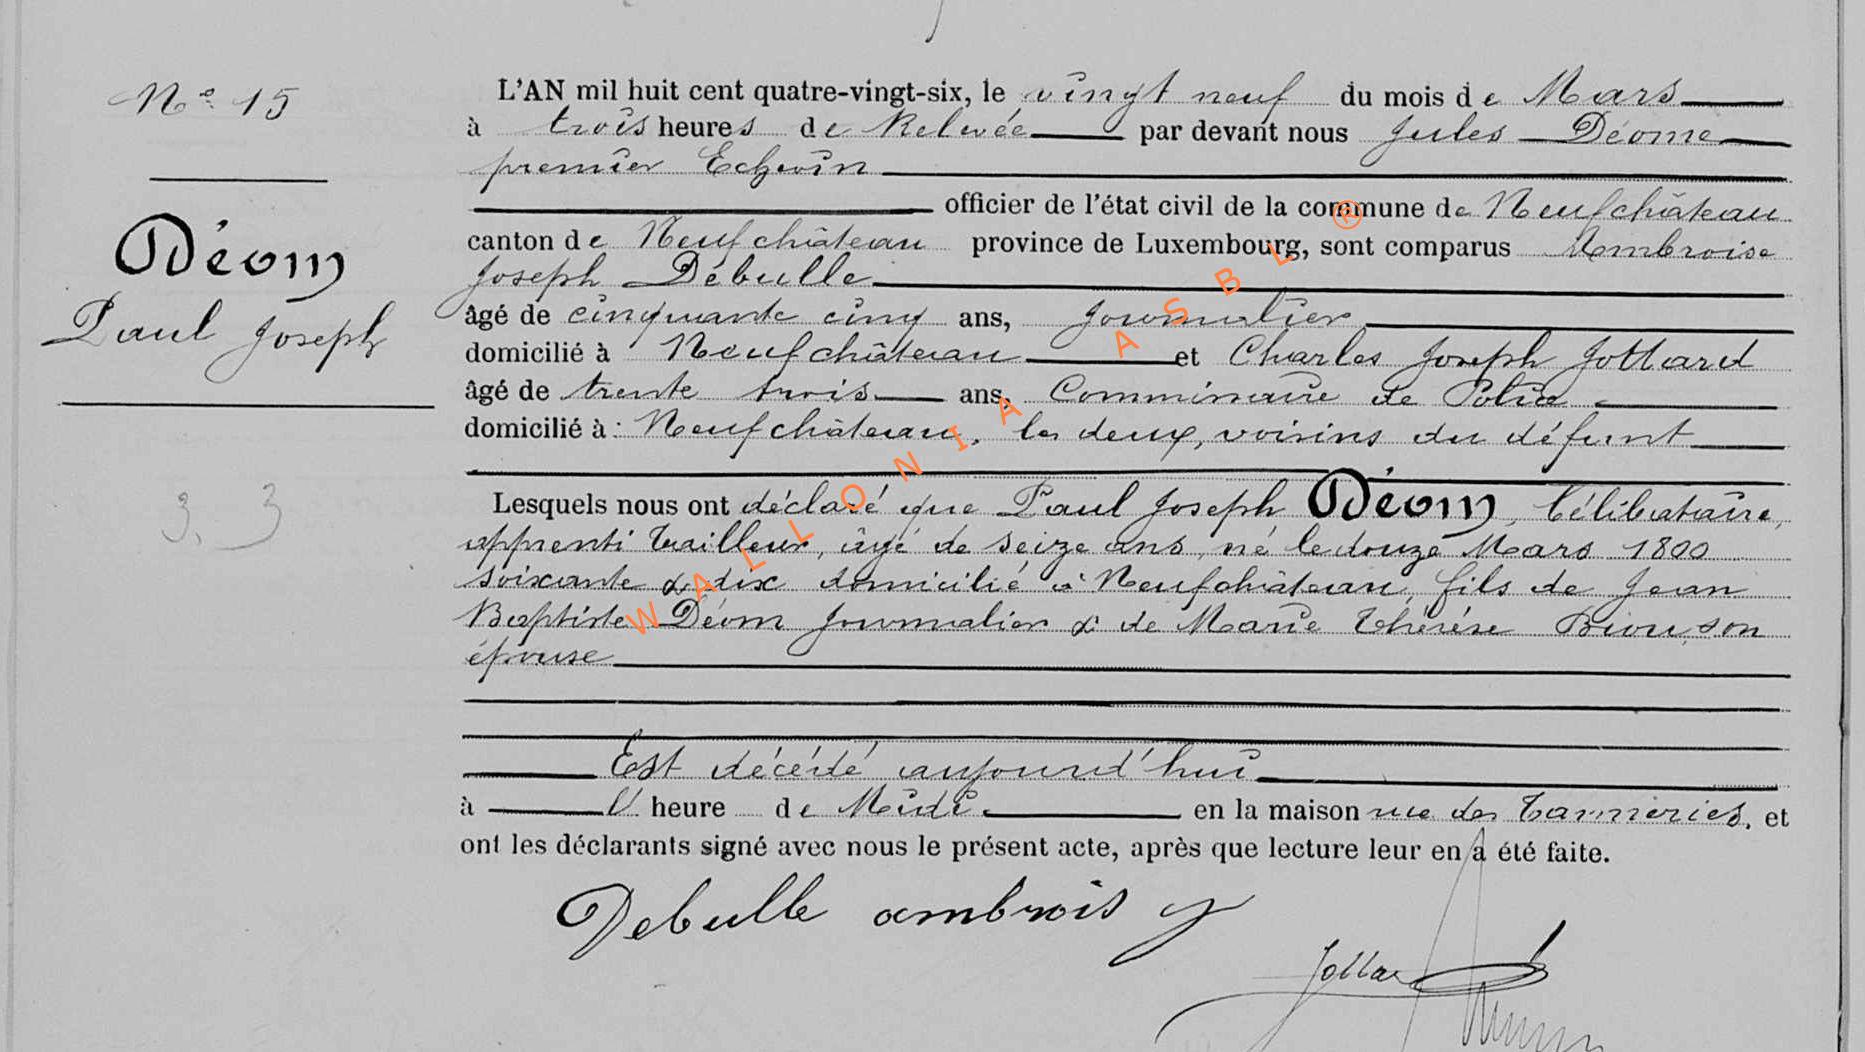 N° 15
Déom
Paul Joseph
3.3
L'AN mil huit cent quatre-vingt-six, le vingt neuf du mois de Mars
à trois heures de Relevée par devant nous Jules Déome
premier Echevin
officier de l'état civil de la commune de Neufchâteau
canton de Neufchâteau province de Luxembourg, sont comparus Ambroise
Joseph Debulle
âgé de cinquante cinq ans, Journalier
domicilié à Neufchâteau et Charles Joseph Jottard
âgé de trente trois ans, Commissaire de Police
domicilié à : Neufchâteau, les deux, voisins du défunt
Lesquels nous ont déclaré que Paul Joseph Déom, Célibataire,
apprenti tailleur, âgé de seize ans, né le douze Mars 1800
soixante & dix domicilié à Neufchâteau, fils de Jean
Baptiste Déom Journalier & de Marie Thérèse Briou, son
épouse
Est décédé aujourd'hui
à l' heure de Midi en la maison rue des Tanneries, et
ont les déclarants signé avec nous le présent acte, après que lecture leur en a été faite.
Debulle ambrois j
Jottar
WALLONIA ASBL ®